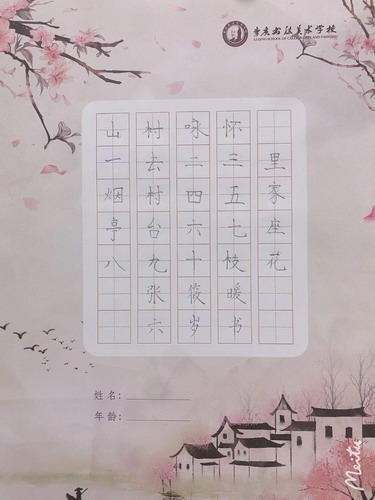 李庆书法美术学校
LIQING SCHOOL OF CALLIGRAPHY AND PAINTING
山村咏怀
一去二三里
烟村四五家
亭台六七座
八九十枝花
张筱暖
六岁书
姓名:
年龄:
Meitu